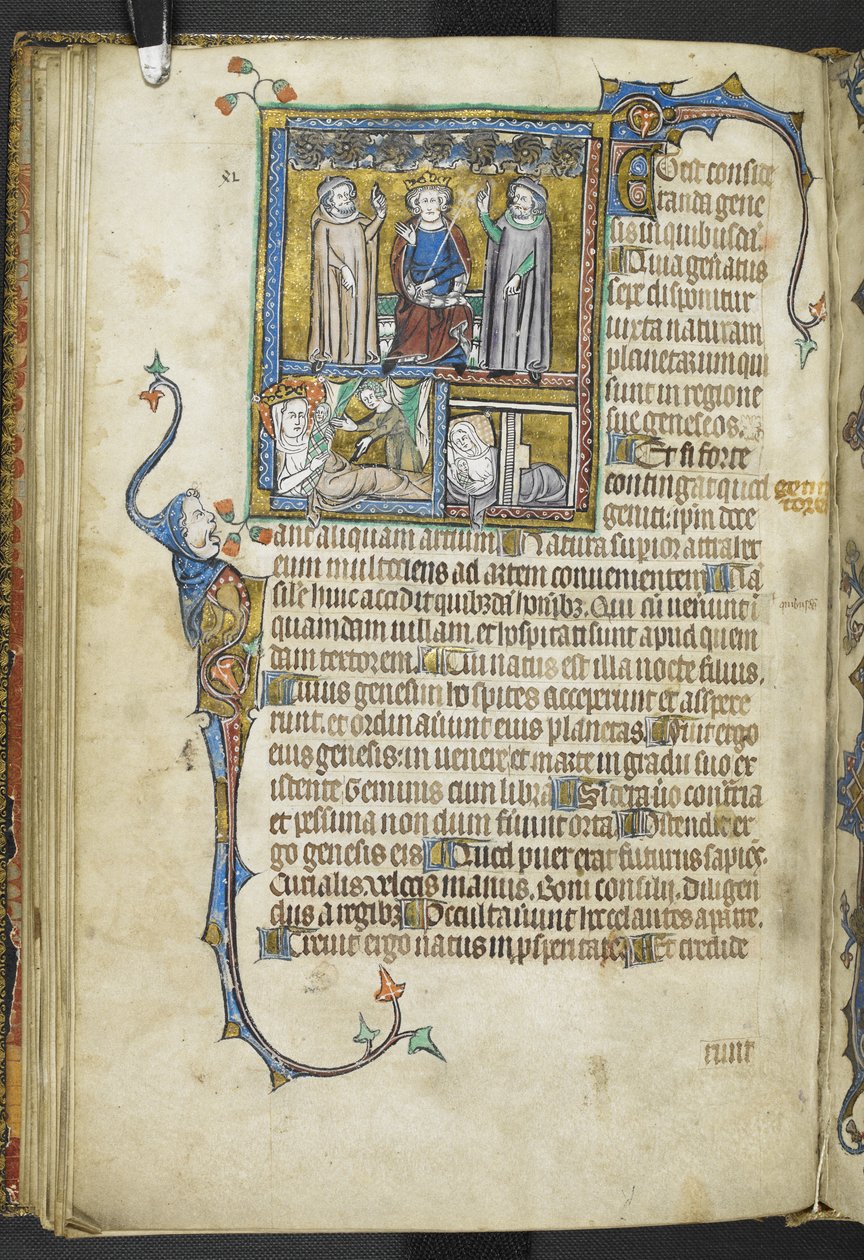 XL
Eo est conside
randa gene
sis in quibusdā.
Quia gen̄atus
sepe disponitur
iuxta naturam
planetarum qui
sunt in regione
sue geneseos.
Et si forte
contingat quod geni
tores
geniti ip̄m doce
ant aliquam artium Natura sup̄ior attrahet
eum multociens ad artem convenientem
sile huic accidit quibzdā hoībz. Qui cū ven̄unt ī
quamdam villam. et hospitati sunt apud quem
dam textorem. Cui natus est illa nocte filius.
Cuius genesim hospites acceperunt et aspexe
runt. et ordinav̄unt eius planetas. Fuit ergo
eius genesis: in venere et marte in gradu suo ex
istente Geminis cum libra Sidera v̄o cont̄ria
et pessima non dum fūunt orta Ostendit er
go genesis eis Quod puer erat futurus sapiēs.
Curialis. velocis manus. Boni consilij. diligen
dus a regibz Occultav̄unt hec celantes a patre.
Crevit ergo natus in psperitate Et credide
runt